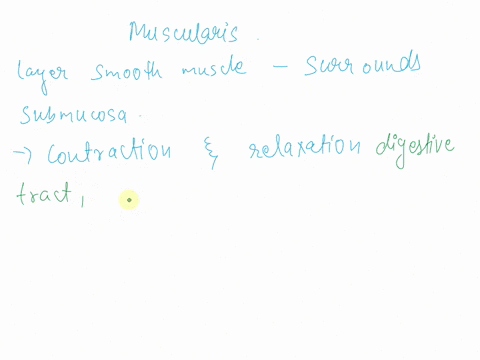 Muscularis.
layer smooth muscle - surrounds
submucosa.
→ contraction & relaxation digestive
tract,